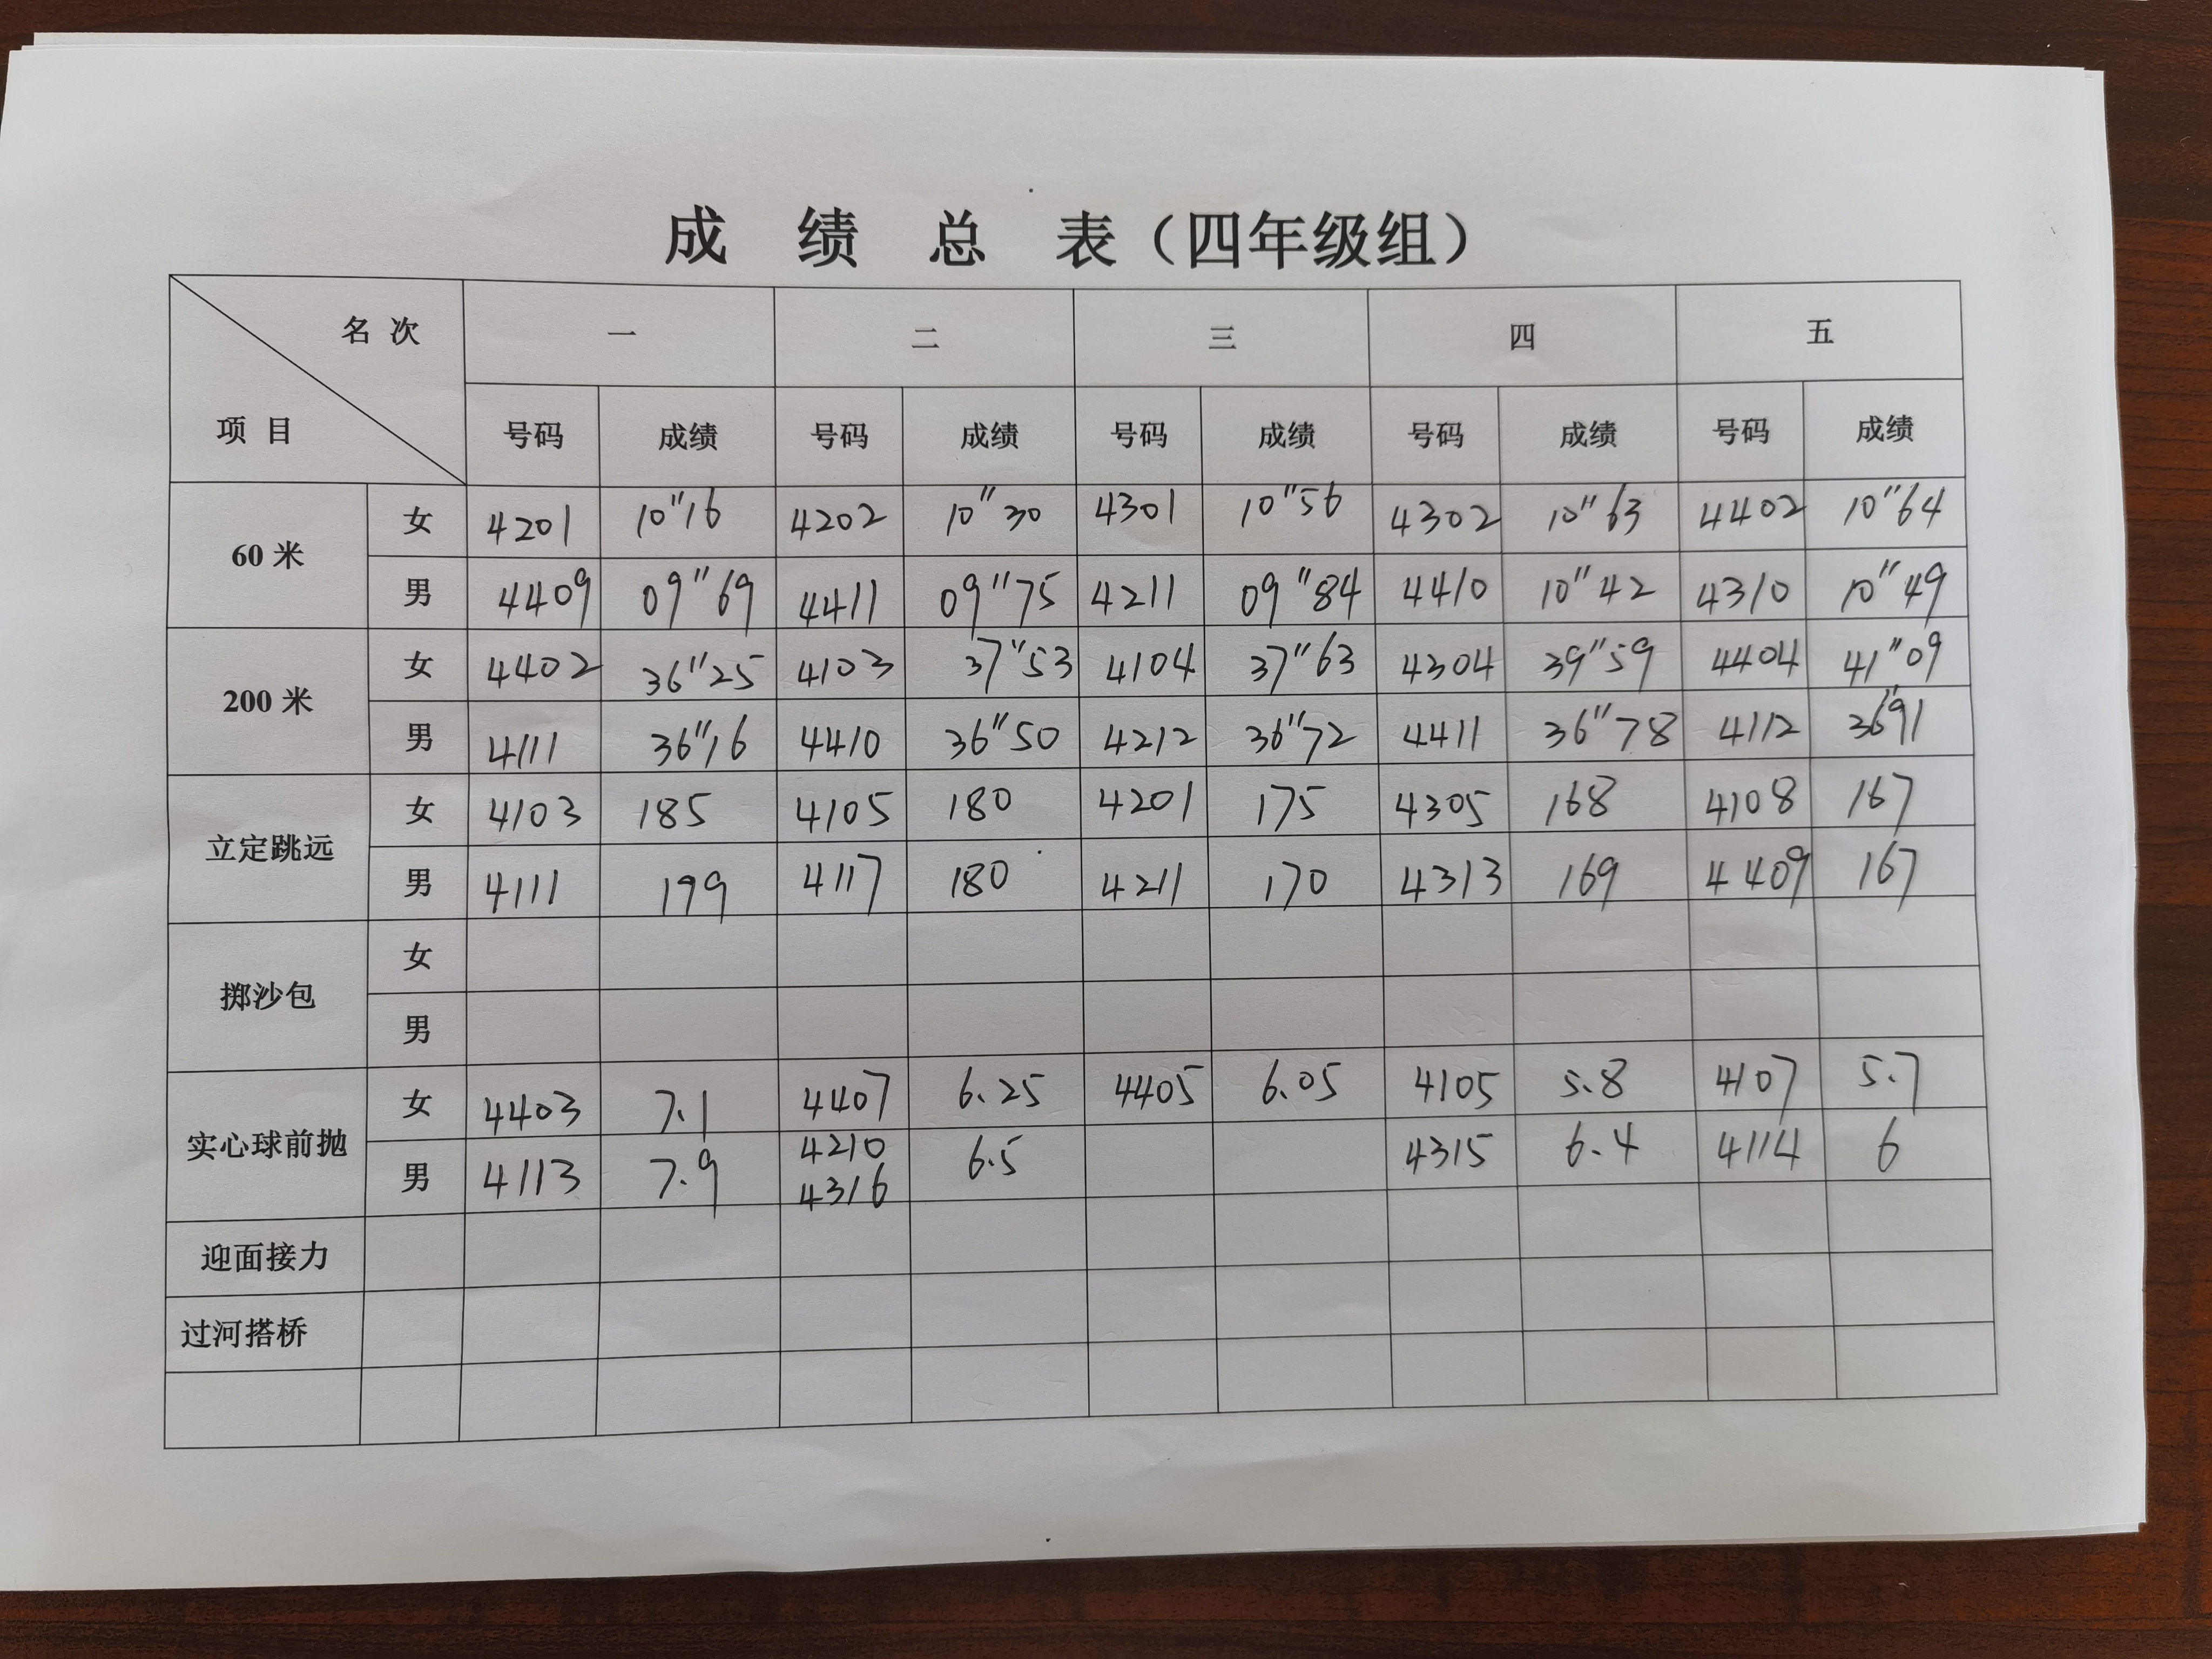 成 绩 总 表（四年级组）
名 次 一 二 三 四 五
项 目 号码 成绩 号码 成绩 号码 成绩 号码 成绩 号码 成绩
60 米 女 4201 10"16 4202 10"30 4301 10"56 4302 10"63 4402 10"64
男 4409 09"69 4411 09"75 4211 09"84 4410 10"42 4310 10"49
200 米 女 4402 36"25 4103 37"53 4104 37"63 4304 39"59 4404 41"09
男 4111 36"16 4410 36"50 4212 36"72 4411 36"78 4112 36"91
立定跳远 女 4103 185 4105 180 4201 175 4305 168 4108 167
男 4111 199 4117 180 4211 170 4313 169 4409 167
掷沙包 女
男
实心球前抛 女 4403 7.1 4407 6.25 4405 6.05 4105 5.8 4107 5.7
男 4113 7.9 4210 6.5 4315 6.4 4114 6
4316
迎面接力
过河搭桥